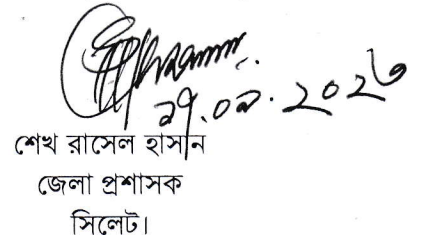 ২৭.০৯.২০২৩
শেখ রাসেল হাসান
জেলা প্রশাসক
সিলেট।